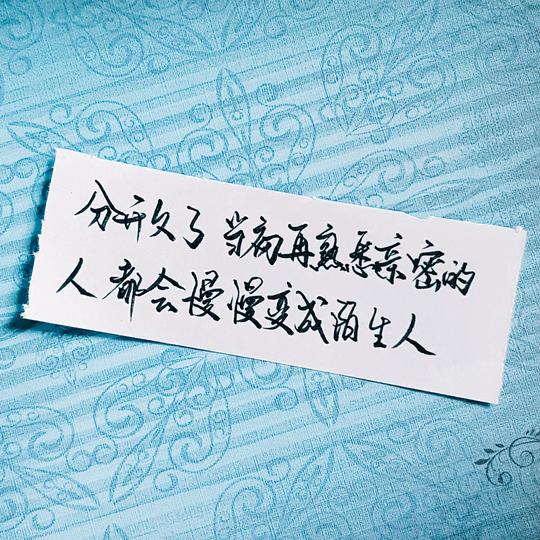 分开久了 当初再熟悉亲密的
人都会慢慢变成陌生人